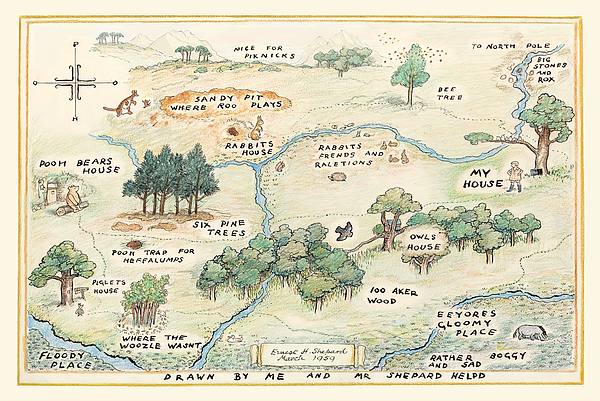 P
O
H
NICE FOR
PIKNICKS
TO NORTH POLE
BIG
STONES
AND
ROX
BEE
TREE
SANDY PIT
WHERE ROO PLAYS
RABBITS
HOUSE
RABBITS
FRENDS AND
RALETIONS
POOH BEARS
HOUSE
MY
HOUSE
SIX PINE
TREES
POOH TRAP FOR
HEFFALUMPS
OWLS
HOUSE
PIGLETS
HOUSE
100 AKER
WOOD
EEYORES
GLOOMY
PLACE
WHERE THE
WOOZLE WASNT
FLOODY
PLACE
Ernest H. Shepard
March 1959
RATHER BOGGY
AND SAD
DRAWN BY ME AND MR SHEPARD HELPD